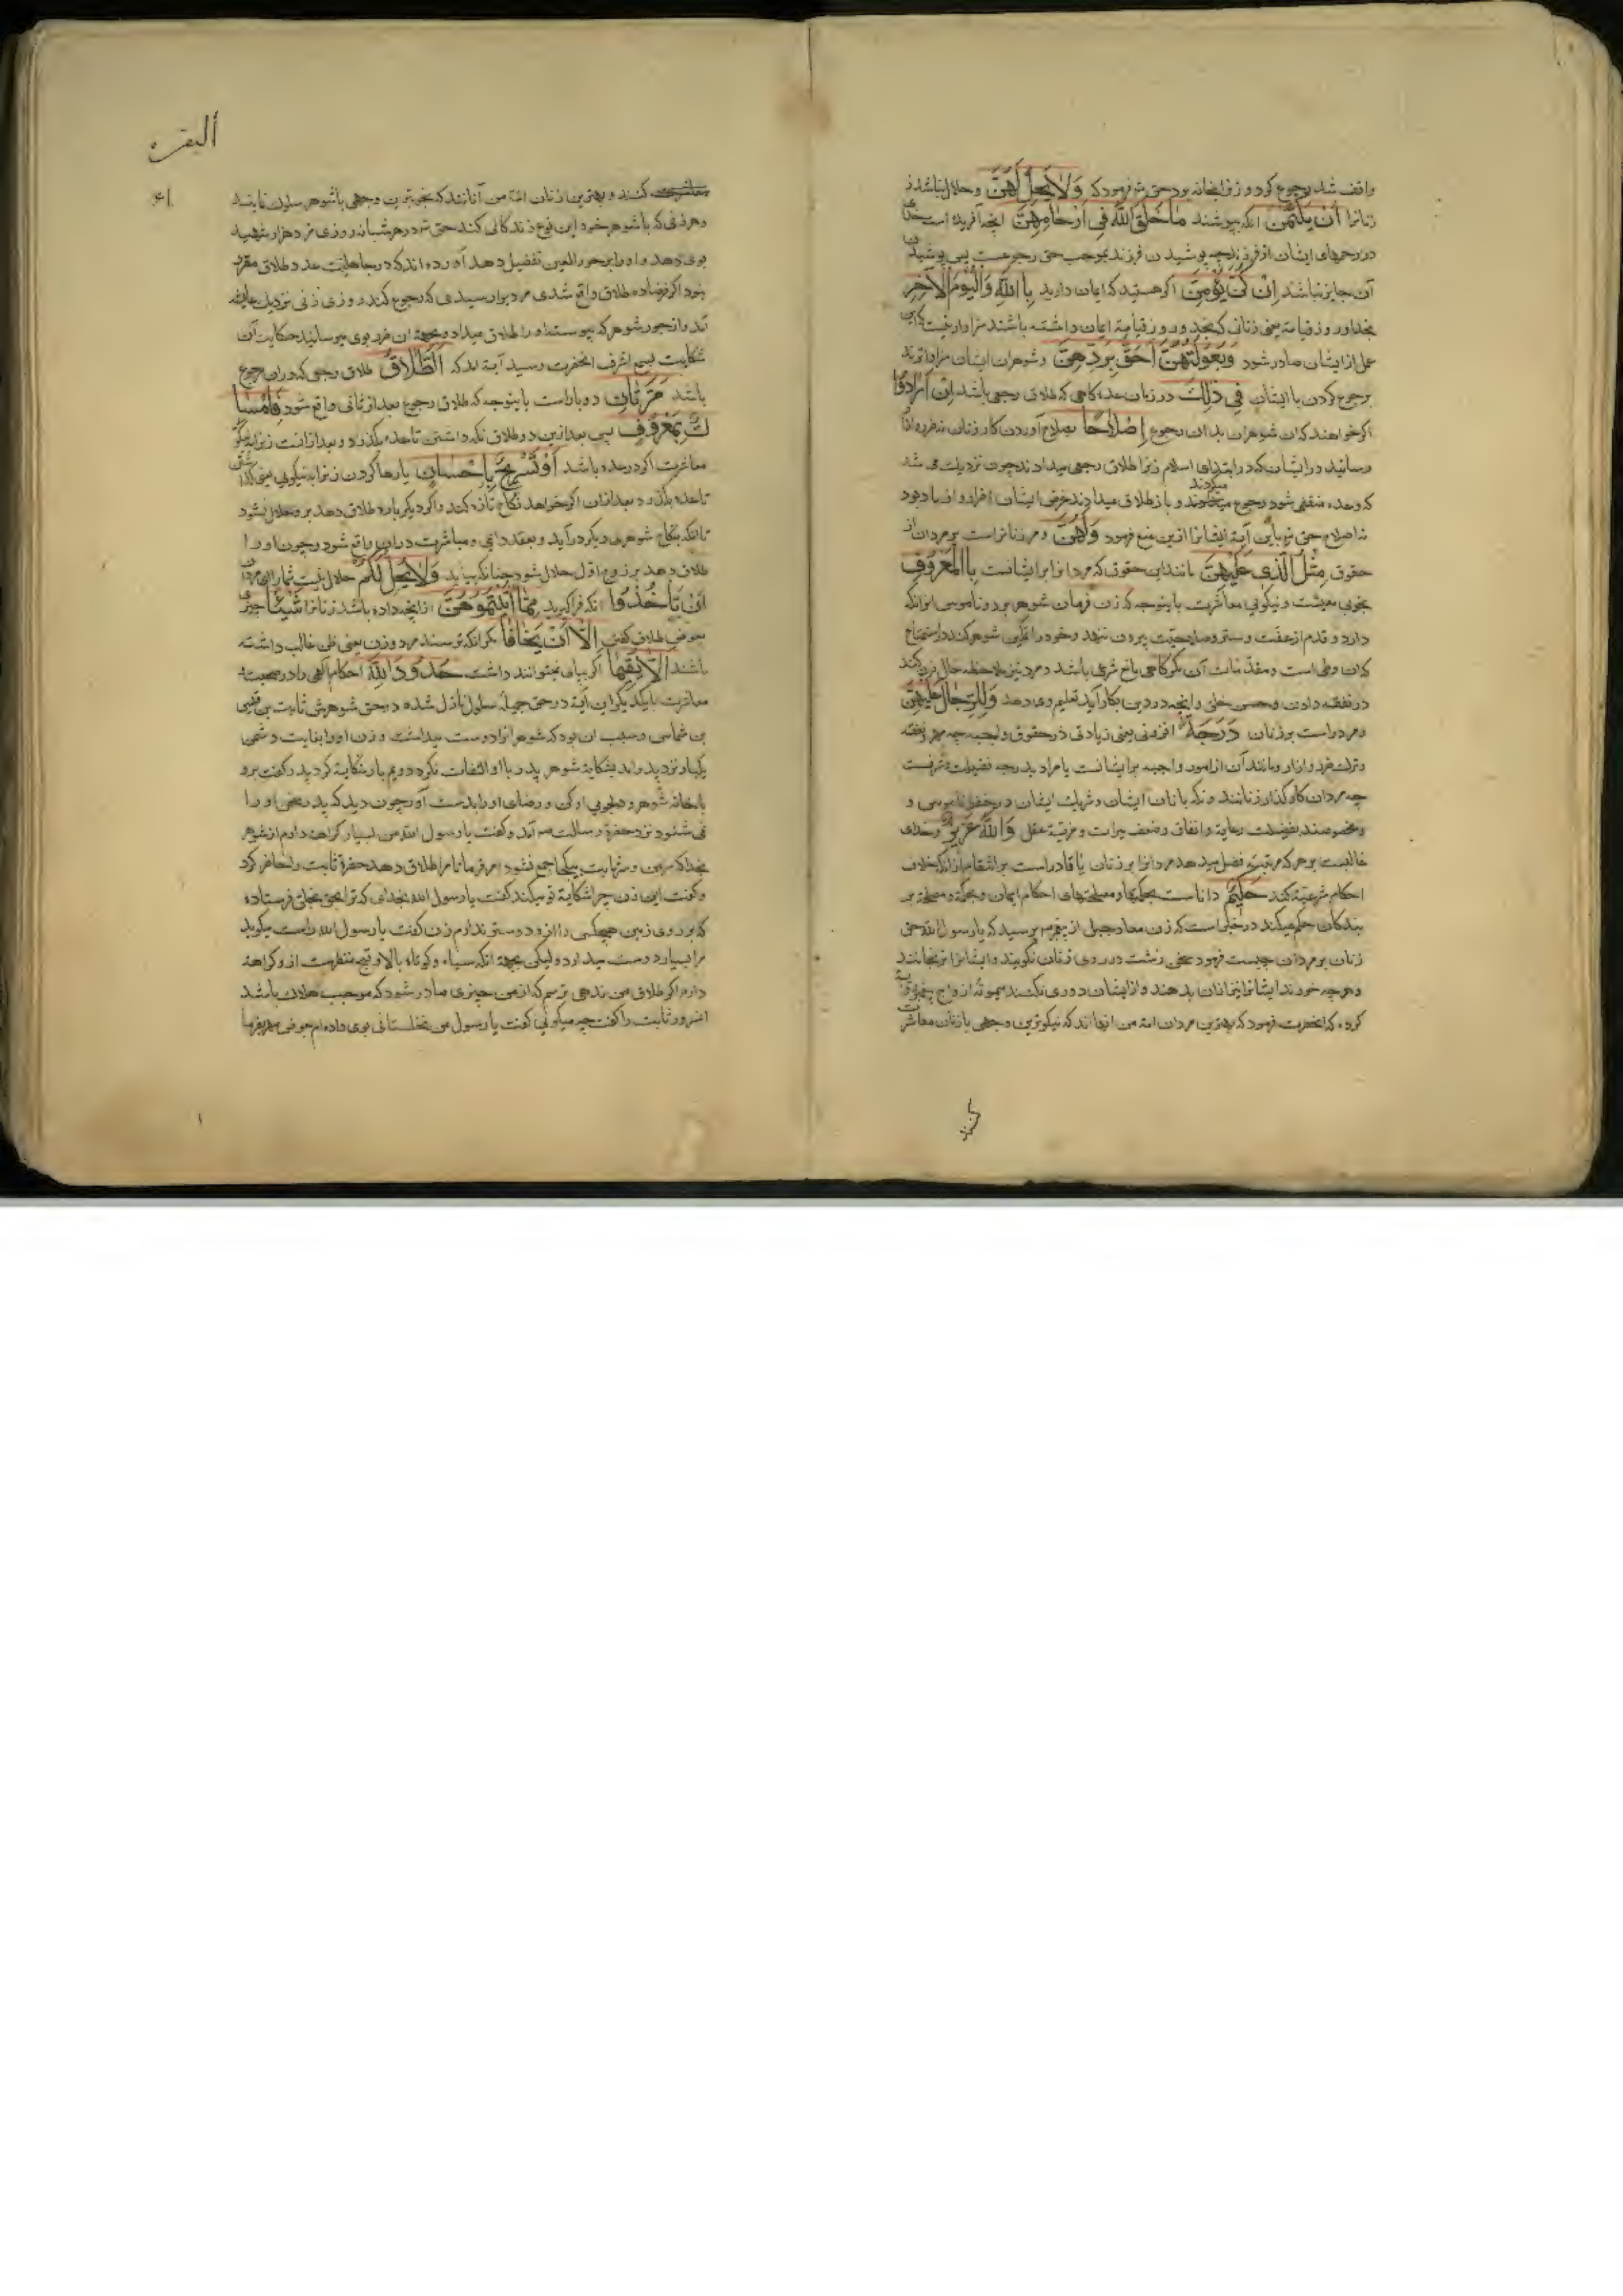 واقف شد رجوع کرد و زنرا بخانه برد حق تع فرمود که وَلَا يَحِلُّ لَهُنَّ و حلال نباشد
زنانرا أَنْ يَكْتُمْنَ انکه بپوشند مَا خَلَقَ اللَّهُ فِي أَرْحَامِهِنَّ انچه آفریده است خدا
در رحمهای ایشان از فرزند چه پوشیدن فرزند بموجب حق رجوعست پس پوشیدن
آن جایز نباشد إِنْ كُنَّ يُؤْمِنَّ اگر هستید که ایمان دارید بِاللَّهِ وَالْيَوْمِ الْآخِرِ
بخدا و روز قیامة یعنی زنانی که بخدا و روز قیامة ایمان داشته باشند سزاوار نیست که این
عمل از ایشان صادر شود وَبُعُولَتُهُنَّ أَحَقُّ بِرَدِّهِنَّ و شوهران ایشان سزاوارترند
برجوع کردن با ایشان فِي ذَلِكَ در زمان عده کاهی که طلاق رجعی باشد إِنْ أَرَادُوا
اگر خواهند کان شوهران بدان رجوع إِصْلَاحًا بصلاح آوردن کار زنان نه ضرر و اذا
رسانیدن ایشان که در ابتدای اسلام زنرا طلاق رجعی میدادند چون نزدیک می شد
که عده منقضی شود رجوع میکردند و باز طلاق میدادند غرض ایشان اضرار و افساد بود
نه اصلاح حق تع باین آیة ایشانرا ازین منع فرمود وَلَهُنَّ و مر زنانراست بر مردان از
حقوق مِثْلُ الَّذِي عَلَيْهِنَّ مانند این حقوق که مردانرا بر ایشانست بِالْمَعْرُوفِ
بخوبی معیشت و نیکویی معاشرت باینوجه که زن فرمان شوهر برد و ناموس او نگه
دارد و قدم از عفت و ستر و صلاحیت بیرون ننهد و خود را تمکین شوهر کند در استمتاع
که آن وطی است و مقدمات آن مگر کاهی مانع شرعی باشد و مرد نیز ملاحظه حال زن کند
در نفقه دادن و حسن خلق و انچه در دین بکار آید تعلیم وی دهد وَلِلرِّجَالِ عَلَيْهِنَّ
و مردراست بر زنان دَرَجَةٌ افزونی یعنی زیادتی در حقوق واجبه چه مهر و نفقه
و ترک ضرر و ازار و مانند آن از امور واجبه بر ایشانست یا مراد بدرجه فضیلت و شرفست
چه مردان کارگذار زنانند و نگهبانان ایشان و شریک ایشان در حفظ ناموس و
مخصوصند بفضیلت رعایة و انفاق و ضعف میراث و مزیة عقل وَاللَّهُ عَزِيزٌ و خدای
غالبست بر هر که مرتبه فضل میدهد مردانرا بر زنان یا قادراست بر انتقام از آنکه خلاف
احکام شرعیة کند حَكِيمٌ داناست بحکمها و مصلحتهای احکام ایمان و بحکمة و مصلحة بر
بندکان حکم میکند در خبر است که زن معاذ جبل از پیغمبر پرسید که یا رسول الله حق
زنان بر مردان چیست فرمود سخن زشت در روی زنان نگویند و ایشانرا نرنجانند
و هر چه خورند ایشانرا نیز از آن بدهند و از ایشان دوری نکنند
کرده که انحضرت فرمود که بهترین مردان امة من انها اند که نیکوترین وجهی با زنان معاشرت
کنند
البقره
کنند و بهترین زنان امة من آنانند که بخوبترین وجهی با شوهر سلوک نمایند
و هر زنی که با شوهر خود این نوع زندکانی کند حق تع در هر شبانه روزی مزد هزار شهید
بوی دهد و او را بر حور العین تفضیل دهد آورده اند که در جاهلیت عدد طلاق مقرر
نبود اگر فرضا ده طلاق واقع شدی مرد را رسیدی که رجوع کند روزی زنی نزدیک عایشه
آمد و از جور شوهر که پیوسته او را طلاق میداد و بجهة آن ضرر بوی میرسانید حکایت آن
شکایت بسمع اشرف انحضرت رسید آیة آمد که اَلطَّلَاقُ طلاق رجعی که در آن رجوع
باشد مَرَّتَانِ دو باراست باینوجه که طلاق رجوع بعد از ثانی واقع شود فَإِمْسَا
كٌ بِمَعْرُوفٍ پس بعد ازین دو طلاق نکه داشتن تا عده بگذرد و بعد ازانست زنرا بنیکو
معاشرت اگر در عده باشد أَوْ تَسْرِيحٌ بِإِحْسَانٍ یا رها کردن زنرا بنیکویی یعنی
تا عده بگذرد و بعد ازان اگر خواهد نکاح تازه کند و اگر دیکر باره طلاق دهد بر وی حلال نشود
تا انکه بنکاح شوهری دیکر درآید و بعقد دایمی و مباشرت در آن واقع شود و چون او را
طلاق دهد بر زوج اول حلال شود چنانکه بیاید وَلَا يَحِلُّ لَكُمْ حلال نیست شمارا ای مردان
أَنْ تَأْخُذُوا انکه فراگیرید مِمَّا آتَيْتُمُوهُنَّ از انچه داده باشد زنانرا شَيْئًا چیزی
بعوض طلاق گفتن إِلَّا أَنْ يَخَافَا مگر انکه ترسند مرد و زن یعنی ظن غالب داشته
باشند أَلَّا يُقِيمَا اگر بپای نتوانند داشت حُدُودَ اللَّهِ احکام الهی را در صحبت
معاشرت با یکدیگر این آیة در حق جمیله سلول نازل شده در حق شوهرش ثابت بن قیس
بن شماس و سبب ان بود که شوهر او را دوست میداشت و زن او را بغایت دشمن
یکبار نزد پدر امد بشکایة شوهر پدر با او التفات نکرد دویم بار شکایة کرد پدر گفت برو
بخانه شوهر و دلجویی او کن و رضای او را بدست آور چون دید که پدر سخن او را
نمی شنود نزد حضرة رسالت صم آمد و گفت یا رسول الله من بسیار کراهت دارم از شوهر
بخدا که سر من و سر ثابت بیکجا جمع نشود امر فرما تا مرا طلاق دهد حضرة ثابت را حاضر کرد
و گفت این زن چرا شکایة تو میکند گفت یا رسول الله بخدای که ترا بحق بخلق فرستاده
که بر روی زمین هیچکس را از او دوستر ندارم زن گفت یا رسول الله راست میگوید
مرا بسیار دوست میدارد ولیکن بجهة انکه سیاه و کوتاه بالا و قبیح منظرست از و کراهة
دارم اگر طلاق من ندهی ترسم که از من چیزی صادر شود که موجب هلاک باشد
انسرور ثابت را گفت چه میگوئی گفت یا رسول من نخلستانی بوی داده ام بعوض مهر بفرما